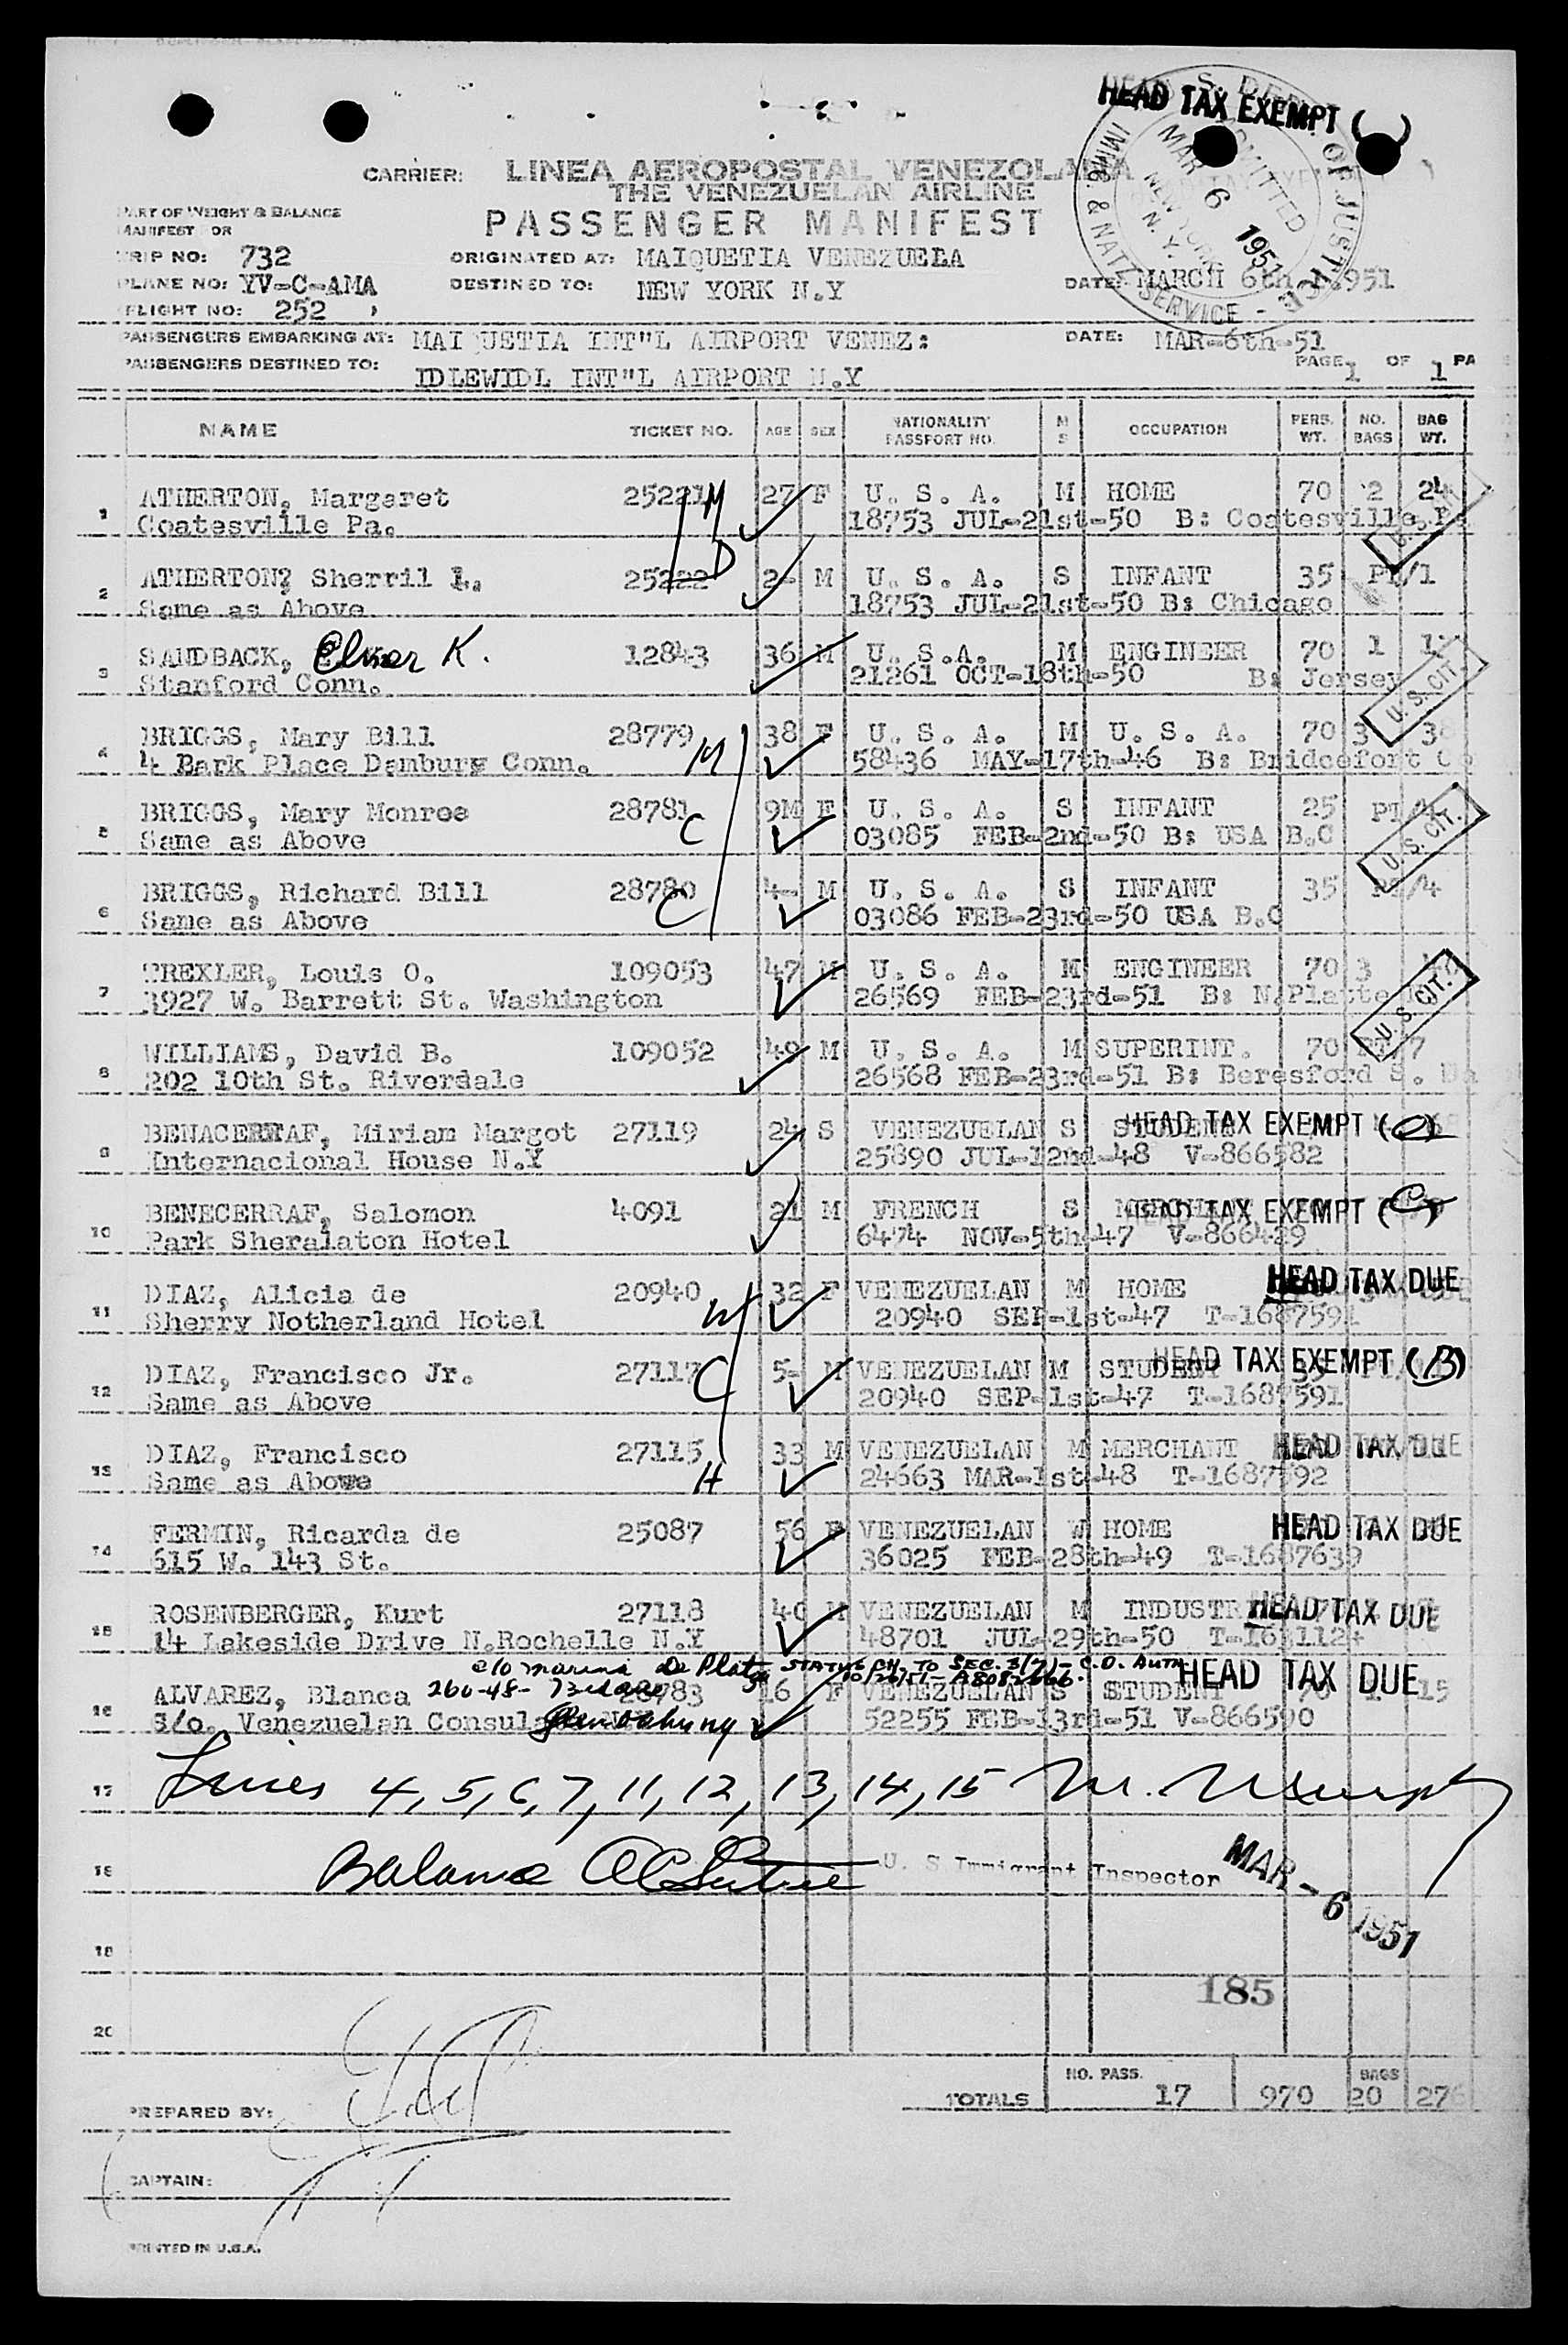 HEAD TAX EXEMPT
U. S. DEPT. OF JUSTICE
IMMIG. & NATZ. SERVICE
ADMITTED
MAR 6 1951
NEW YORK
N. Y.
CARRIER: LINEA AEROPOSTAL VENEZOLANA
THE VENEZUELAN AIRLINE
PASSENGER MANIFEST
PART OF WEIGHT & BALANCE
MANIFEST FOR
TRIP NO: 732
ORIGINATED AT: MAIQUETIA VENEZUELA
PLANE NO: YV-C-AMA
DESTINED TO: NEW YORK N.Y
DATE: MARCH 6th 1951
FLIGHT NO: 252
PASSENGERS EMBARKING AT: MAIQUETIA INT"L AIRPORT VENEZ: DATE: MAR-6th-51
PASSENGERS DESTINED TO: IDLEWIDL INT"L AIRPORT N.Y PAGE 1 OF 1 PA
NAME TICKET NO. AGE SEX NATIONALITY PASSPORT NO. M S OCCUPATION PERS. WT. NO. BAGS BAG WT.
1 ATHERTON, Margaret 25221 M 27 F U. S. A. M HOME 70 2 24
Coatesville Pa. 18753 JUL-21st-50 B: Coatesville Pa
2 ATHERTON? Sherril L. 25222 D 2- M U. S. A. S INFANT 35 PT/1
Same as Above 18753 JUL-21st-50 B: Chicago
3 SANDBACK, Elmer K. 12843 36 M U. S.A. M ENGINEER 70 1
Stanford Conn. 21261 OCT-18th-50 B: Jersey
U. S. CIT.
4 BRIGGS, Mary Bill 28779 M 38 F U. S. A. M U. S. A. 70 3
4 Bark Place Dambury Conn. 58436 MAY-17th-46 B: Bridgefort
5 BRIGGS, Mary Monroe 28781 C 9M F U. S. A. S INFANT 25 PT/4
Same as Above 03085 FEB-2nd-50 B: USA B.C
U. S. CIT.
6 BRIGGS, Richard Bill 28780 C 4- M U. S. A. S INFANT 35 PT/4
Same as Above 03086 FEB-23rd-50 USA B.C
7 TREXLER, Louis O. 109053 47 M U. S. A. M ENGINEER 70 3 40
3927 W. Barrett St. Washington 26569 FEB-23rd-51 B: N.Platte
U. S. CIT.
8 WILLIAMS, David B. 109052 49 M U. S. A. M SUPERINT. 70 PT/7
202 10th St. Riverdale 26568 FEB-23rd-51 B: Beresford S. Da
9 BENACERRAF, Miriam Margot 27119 24 S VENEZUELAN S STUDENT HEAD TAX EXEMPT (C)
Internacional House N.Y 25890 JUL-12nd-48 V-866582
10 BENECERRAF, Salomon 4091 21 M FRENCH S MERCHANT HEAD TAX EXEMPT (C)
Park Sheralaton Hotel 6474 NOV-5th-47 V-866429
11 DIAZ, Alicia de 20940 W 32 F VENEZUELAN M HOME HEAD TAX DUE
Sherry Notherland Hotel 20940 SEP-1st-47 T-1687591
12 DIAZ, Francisco Jr. 27117 C 5- M VENEZUELAN M STUDENT 55 HEAD TAX EXEMPT (B)
Same as Above 20940 SEP-1st-47 T-1687591
13 DIAZ, Francisco 27115 H 33 M VENEZUELAN M MERCHANT HEAD TAX DUE
Same as Above 24663 MAR-1st-48 T-1687592
14 FERMIN, Ricarda de 25087 56 F VENEZUELAN W HOME HEAD TAX DUE
615 W. 143 St. 36025 FEB-28th-49 T-1687639
15 ROSENBERGER, Kurt 27118 40 M VENEZUELAN M INDUSTR HEAD TAX DUE
14 Lakeside Drive N.Rochelle N.Y 48701 JUL-29th-50
c/o Marina De Plat STATUS CH. TO SEC. 3(7)- C.O. AUTH
260-48-
16 ALVAREZ, Blanca 16 F VENEZUELAN S STUDENT 70 1 15 HEAD TAX DUE
S/o. Venezuelan Consul 52255 FEB-13rd-51 V-866590
17 Lines 4, 5, 6, 7, 11, 12, 13, 14, 15 M. Murphy
18 Balance U. S Immigrant Inspector MAR - 6 1951
19
185
20
TOTALS NO. PASS. 17 970 BAGS 20 276
PREPARED BY:
CAPTAIN:
PRINTED IN U.S.A.